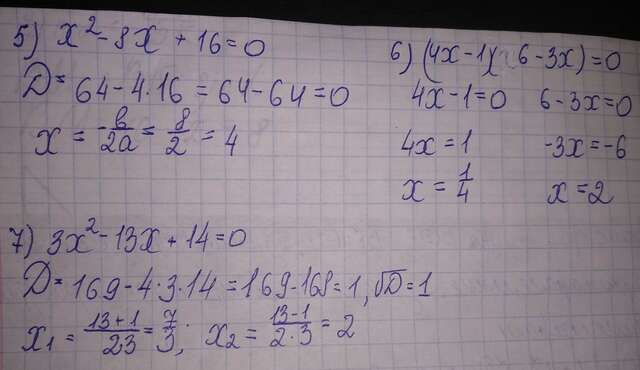 5) x² - 8x + 16 = 0
D = 64 - 4·16 = 64 - 64 = 0
x = -b/2a = 8/2 = 4
6) (4x-1)(6-3x) = 0
4x-1=0 6-3x=0
4x = 1 -3x = -6
x = 1/4 x = 2
7) 3x² - 13x + 14 = 0
D = 169 - 4·3·14 = 169 - 168 = 1, √D = 1
x₁ = 13+1/2·3 = 7/3; x₂ = 13-1/2·3 = 2